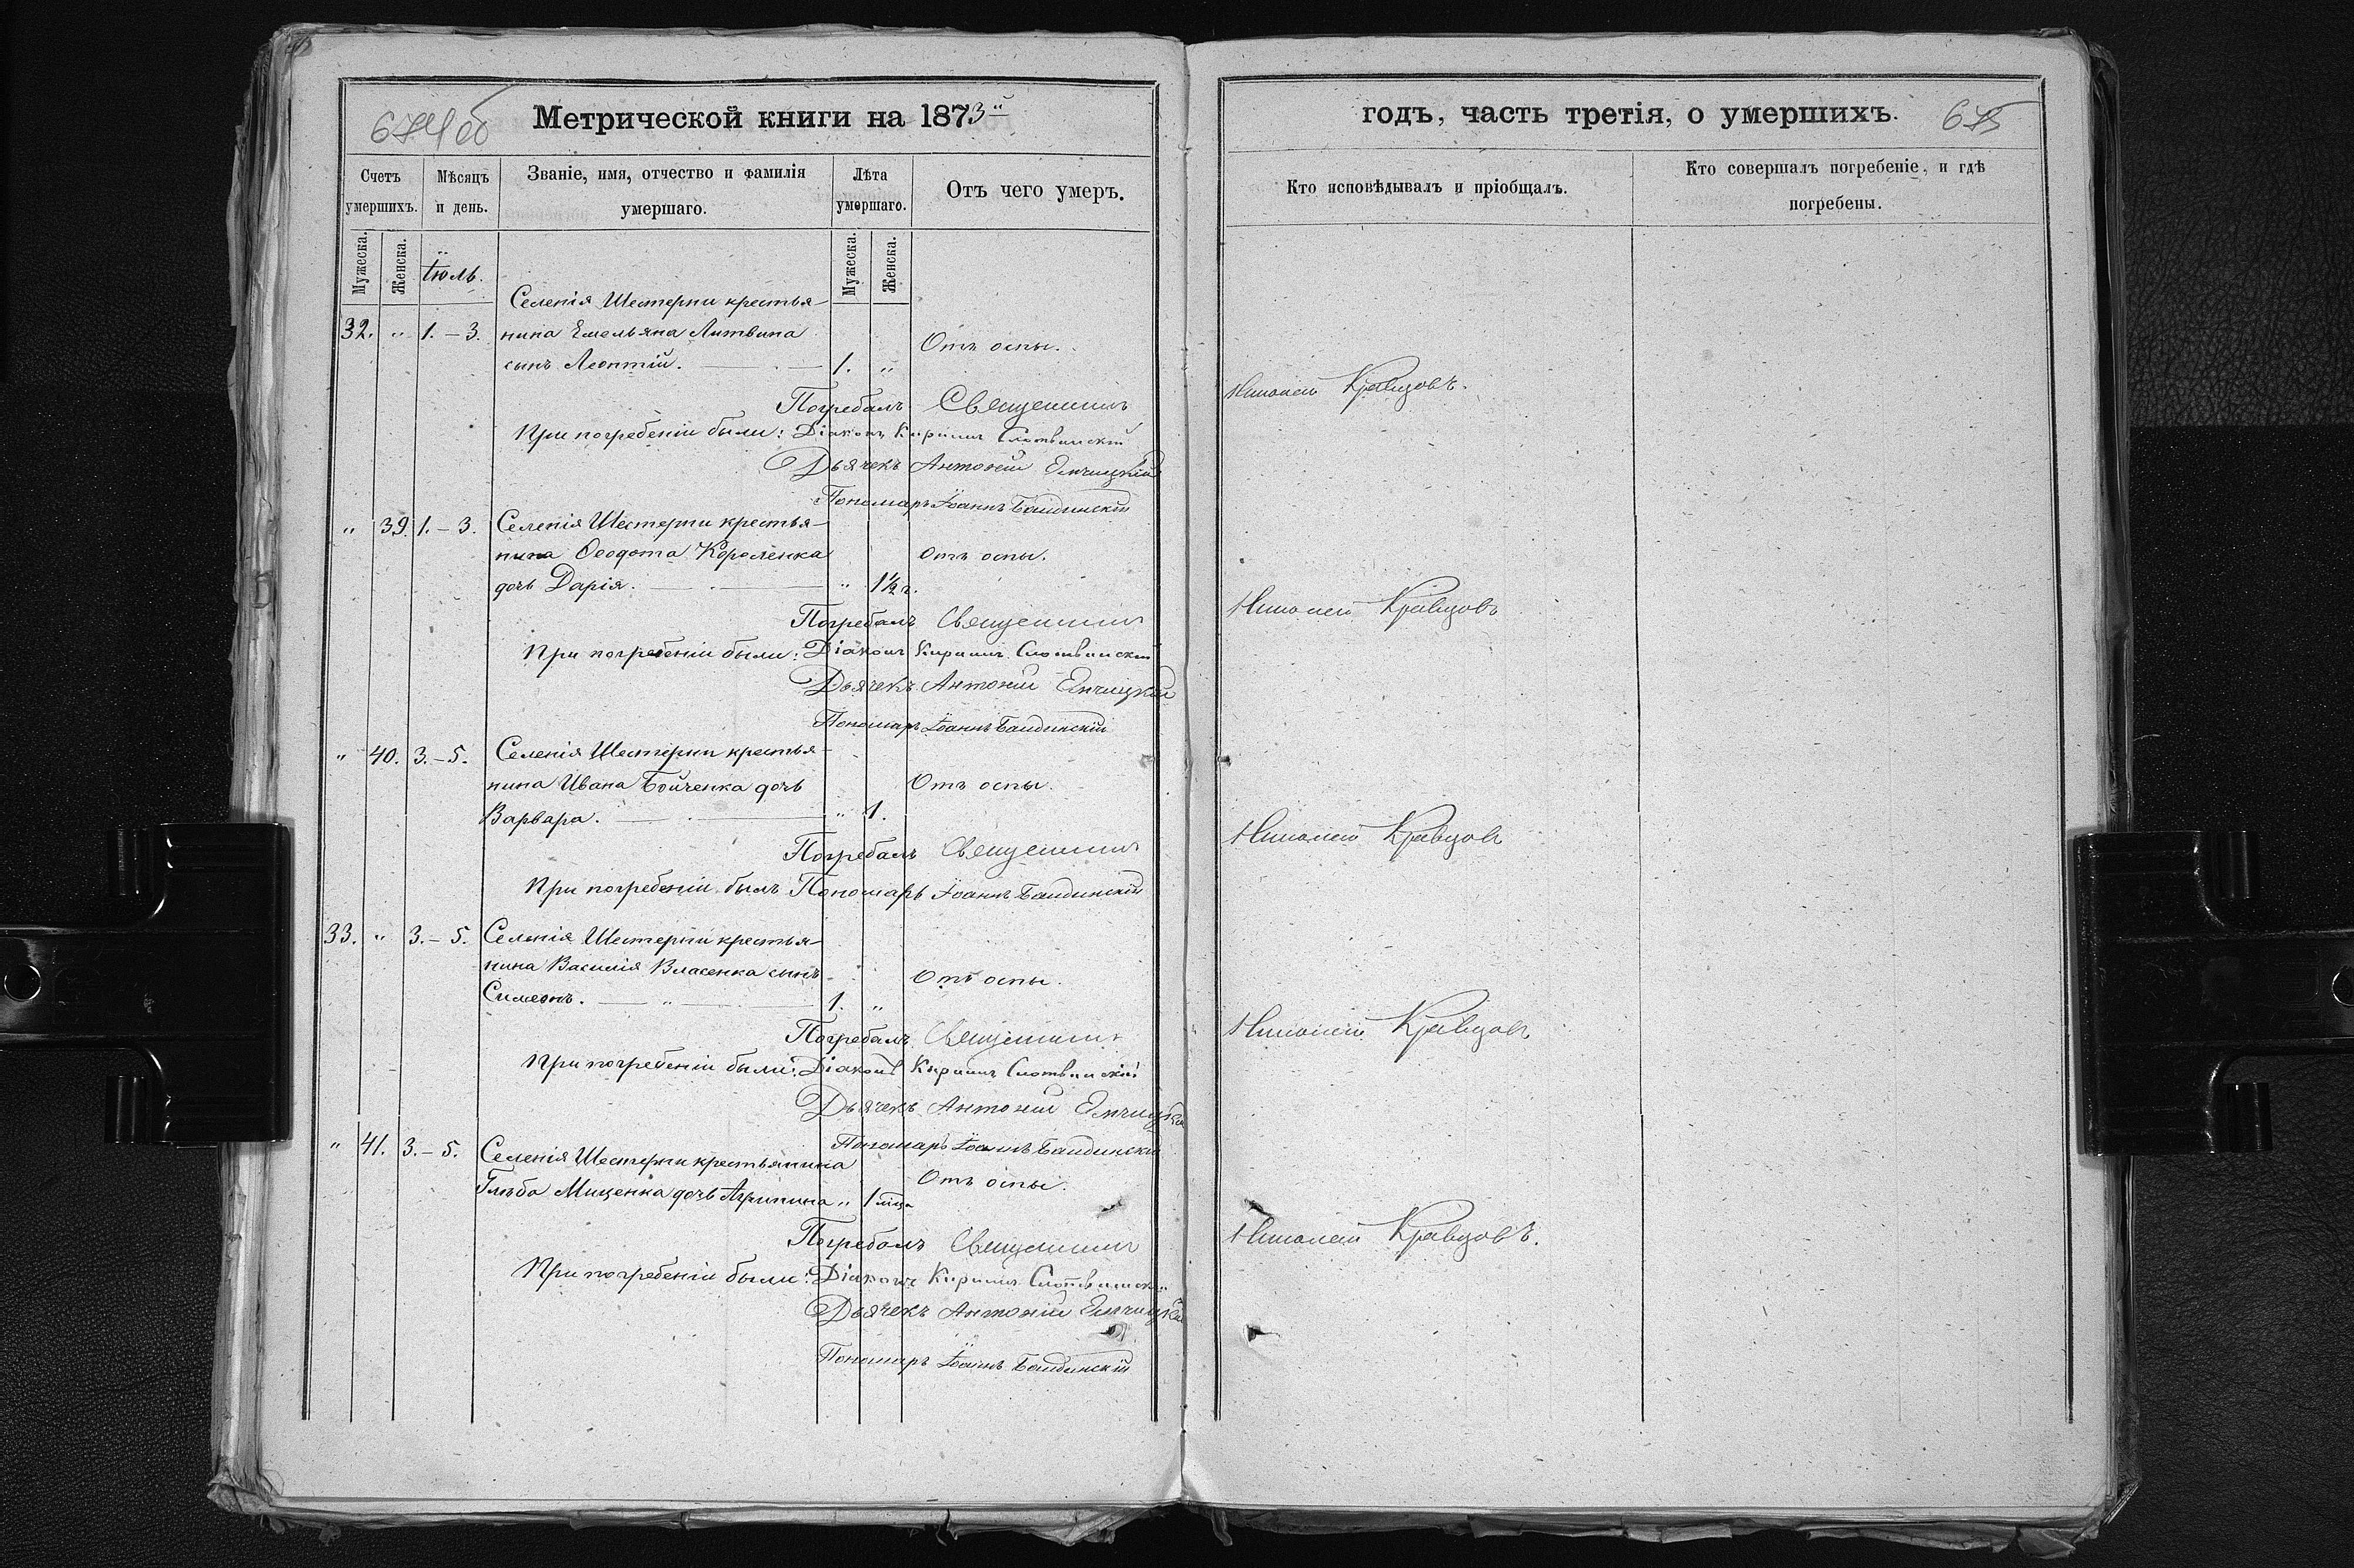 674об
Метрической книги на 1873й
годъ, часть третія, о умершихъ.
675
Счетъ умершихъ.
Мѣсяцъ и день.
Званіе, имя, отчество и фамилія умершаго.
Лѣта умершаго.
Отъ чего умеръ.
Кто исповѣдывалъ и пріобщалъ.
Кто совершалъ погребеніе, и гдѣ погребены.
Мужеска.
Женска.
Іюль.
Мужеска.
Женска.
Селенія Шестерни крестья-
32. " 1.-3. нина Емельяна Литвина
Отъ оспы.
сынъ Леонтій. 1. "
Погребалъ Священникъ Николай Кравцовъ.
При погребеніи были: Діаконъ Кириллъ Слотвинскій
Дьячекъ Антоній
Пономарь Іоаннъ
" 39. 1.-3. Селенія Шестерни крестья-
нина Ѳеодота Короленка
Отъ оспы.
дочь Дарія. " 1½ г.
Погребалъ Священникъ Николай Кравцовъ
При погребеніи были: Діаконъ Кириллъ Слотвинскій
Дьячекъ Антоній
Пономарь Іоаннъ
" 40. 3.-5. Селенія Шестерни крестья-
нина Ивана Бойченка дочь
Отъ оспы.
Варвара. " 1.
Погребалъ Священникъ Николай Кравцовъ
При погребеніи былъ Пономарь Іоаннъ
33. " 3.-5. Селенія Шестерни крестья-
нина Василія Власенка сынъ
Отъ оспы.
Симеонъ. " 1. "
Погребалъ Священникъ Николай Кравцовъ
При погребеніи были: Діаконъ Кириллъ Слотвинскій
Дьячекъ Антоній
Пономарь Іоаннъ
" 41. 3.-5. Селенія Шестерни крестьянина
Отъ оспы.
Глѣба Мищенка дочь Агрипина " 1 мѣца
Погребалъ Священникъ Николай Кравцовъ.
При погребеніи были: Діаконъ Кириллъ Слотвинскій
Дьячекъ Антоній
Пономарь Іоаннъ